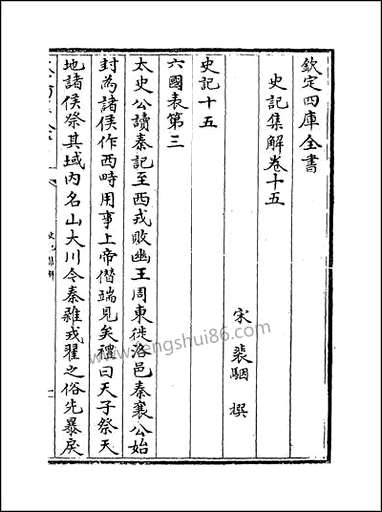 欽定四庫全書
史記集解卷十五
宋 裴駰 撰
史記十五
六國表第三
太史公讀秦記至西戎敗幽王周東徙洛邑秦襄公始
封為諸侯作西畤用事上帝僭端見矣禮曰天子祭天
地諸侯祭其域内名山大川今秦雜戎翟之俗先暴戾
史記集解
www.fengshui86.com